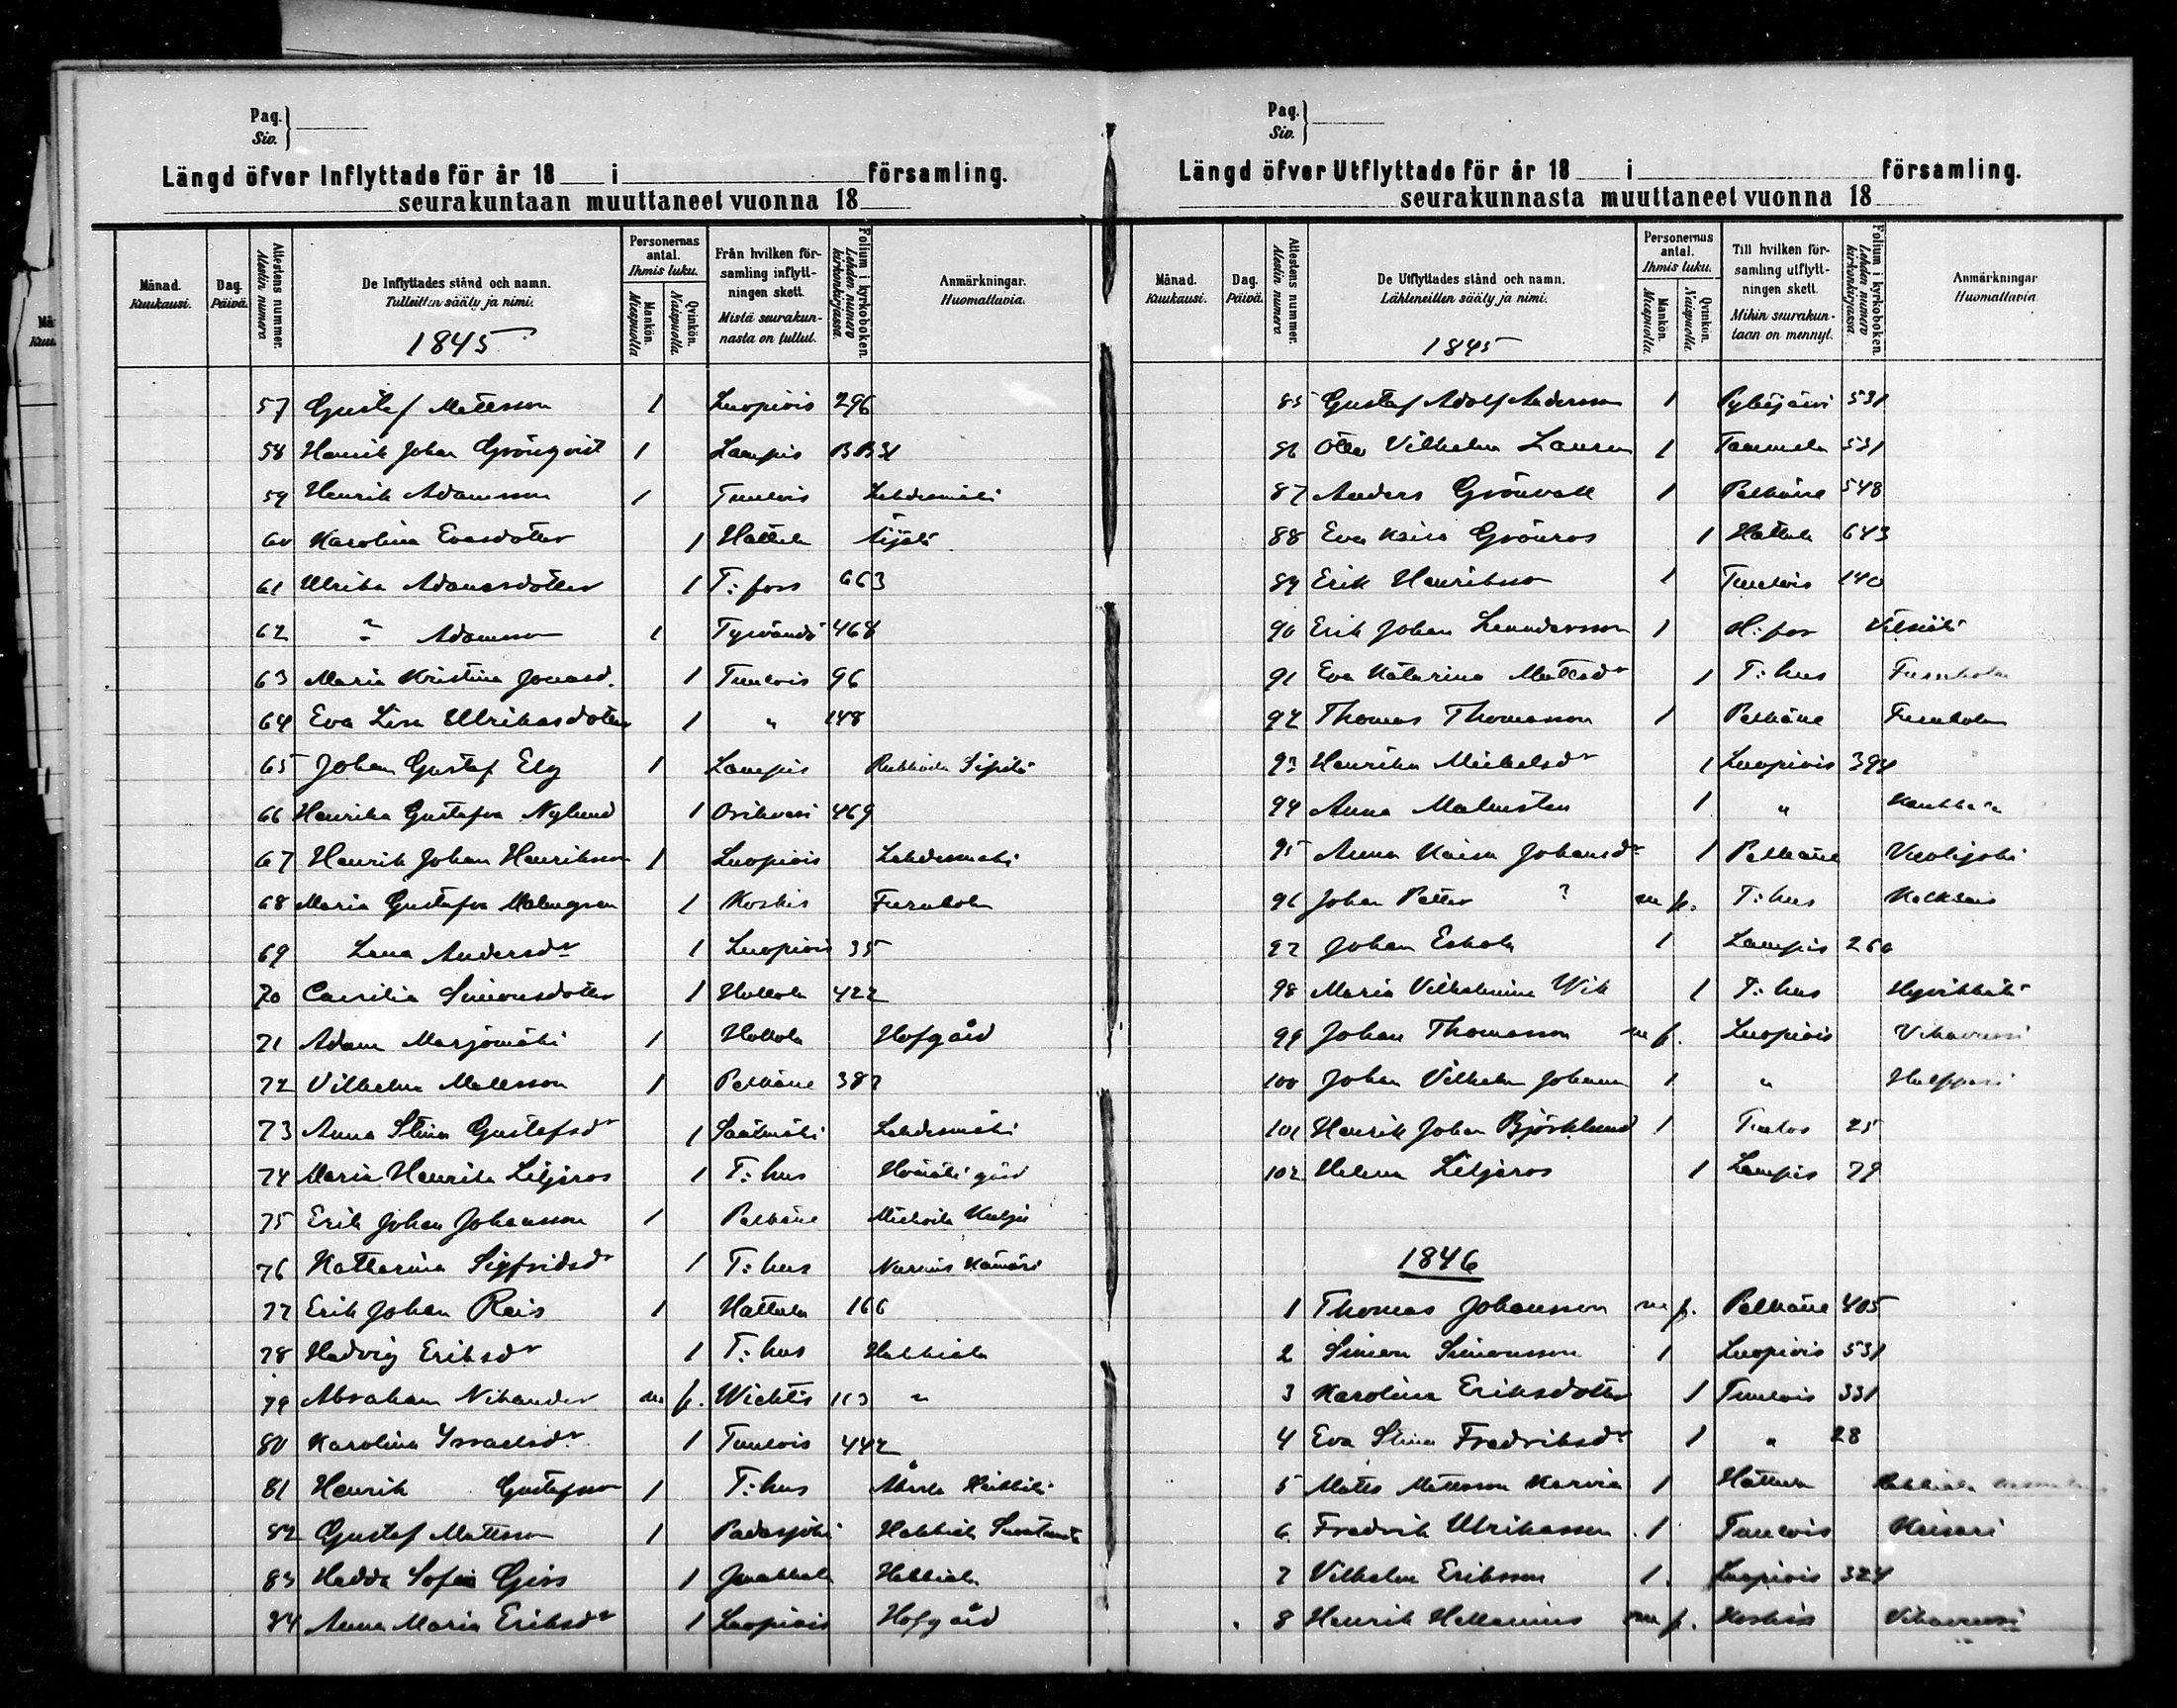 Pag.
Siv.
Längd öfver Inflyttade för år 18 i församling.
seurakuntaan muuttaneet vuonna 18
Månad. Kuukausi.
Dag. Päivä.
Attestens nummer. Atestin numero
De Inflyttades stånd och namn.
Tulleitten sääty ja nimi.
1845
Personernas antal. Ihmis luku.
Mankön. Miespuolta
Qvinkön. Naispuolta
Från hvilken församling inflyttningen skett.
Mistä seurakunnasta on tullut.
Folium i kyrkoboken. Lehden numero kirkonkirjassa.
Anmärkningar.
Huomattavia.
57 Gustaf Mattsson 1 Luopiois 296
58 Henrik Johan Grönqvist 1 Lampis BB31
59 Henrik Adamsson 1 Tuulois Lehdesmäki
60 Karolina Evasdotter 1 Hattula Äijälä
61 Ulrika Adamsdotter 1 T:fors 663
62 ? Adamsson 1 Tyrvändö 468
63 Maria Kristina Jonasd. 1 Tuulois 96
64 Eva Lisa Ulrikasdotter 1 " 148
65 Johan Gustaf Elg 1 Lampis Sipilä
66 Henrika Gustafva Nylund 1 Orihvesi 469
67 Henrik Johan Henriksson 1 Luopiois Lehdesmäki
68 Maria Gustafva Malmgren 1 Koskis Furuholm
69 Lena Andersdr 1 Luopiois 35
70 Caesilia Simonsdotter 1 Hollola 422
71 Adam Marjomäki 1 Hollola Hofgård
72 Vilhelm Mattsson 1 Pelkäne 387
73 Anna Stina Gustafsdr 1 Sääksmäki Lehdesmäki
74 Maria Henrika Liljeros 1 T:hus gård
75 Erik Johan Johansson 1 Pelkäne
76 Katharina Sigfridsdr 1 T:hus
77 Erik Johan Reis 1 Hattula 166
78 Hedvig Eriksdr 1 T:hus Hakkiala
79 Abraham Nikander m f. Wichtis 113 "
80 Karolina Israelsdr 1 Tuulois 442
81 Henrik Gustafsson 1 T:hus Heikkilä
82 Gustaf Mattsson 1 Padasjoki Hakkiala
83 Hedda Sofia Girs 1 Janakkala Hakkiala
84 Anna Maria Eriksdr 1 Luopiois Hofgård
Pag.
Siv.
Längd öfver Utflyttade för år 18 i församling.
seurakunnasta muuttaneet vuonna 18
Månad. Kuukausi.
Dag. Päivä.
Attestens nummer. Atestin numero
De Utflyttades stånd och namn.
Lähteneitten sääty ja nimi.
1845
Personernas antal. Ihmis luku.
Mankön. Miespuolta
Qvinkön. Naispuolta
Till hvilken församling utflyttningen skett.
Mihin seurakuntaan on mennyt.
Folium i kyrkoboken. Lehden numero kirkonkirjassa
Anmärkningar
Huomattavia
85 Gustaf Adolf Andersson 1 Pyhäjärvi 531
86 Otto Vilhelm Lauren 1 Tammela 531
87 Anders Grönvall 1 Pelkäne 548
88 Eva Kaisa Grönros 1 Hattula 643
89 Erik Henriksson 1 Tuulois 140
90 Erik Johan 1 H:fors
91 Eva Katarina Mattsdr 1 T:hus Furuholm
92 Thomas Thomasson 1 Pelkäne Furuholm
93 Henrika Mickelsdr 1 Luopiois 394
94 Anna Malmsten 1 "
95 Anna Kaisa Johansdr 1 Pelkäne Vuolijoki
96 Johan Petter ? m f. T:hus
97 Johan Eskola 1 Lampis 260
98 Maria Vilhelmina Wik 1 T:hus Hyvikkälä
99 Johan Thomasson m f. Luopiois Vihavuosi
100 Johan Vilhelm Johansson 1 "
101 Henrik Johan Björklund 1 Tuulos 25
102 Helena Liljeros 1 Lampis 79
1846
1 Thomas Johansson m f. Pelkäne 405
2 Simon Simonsson 1 Luopiois 531
3 Karolina Eriksdotter 1 Tuulois 331
4 Eva Stina Fredriksdr 1 " 28
5 Matts Mattsson Karvia 1 Hattula Hakkiala
6 Fredrik Ulrikasson 1 Tuulois Keisari
7 Vilhelm Eriksson 1. Luopiois 324
8 Henrik Hellenius m f. Koskis Vihavuosi